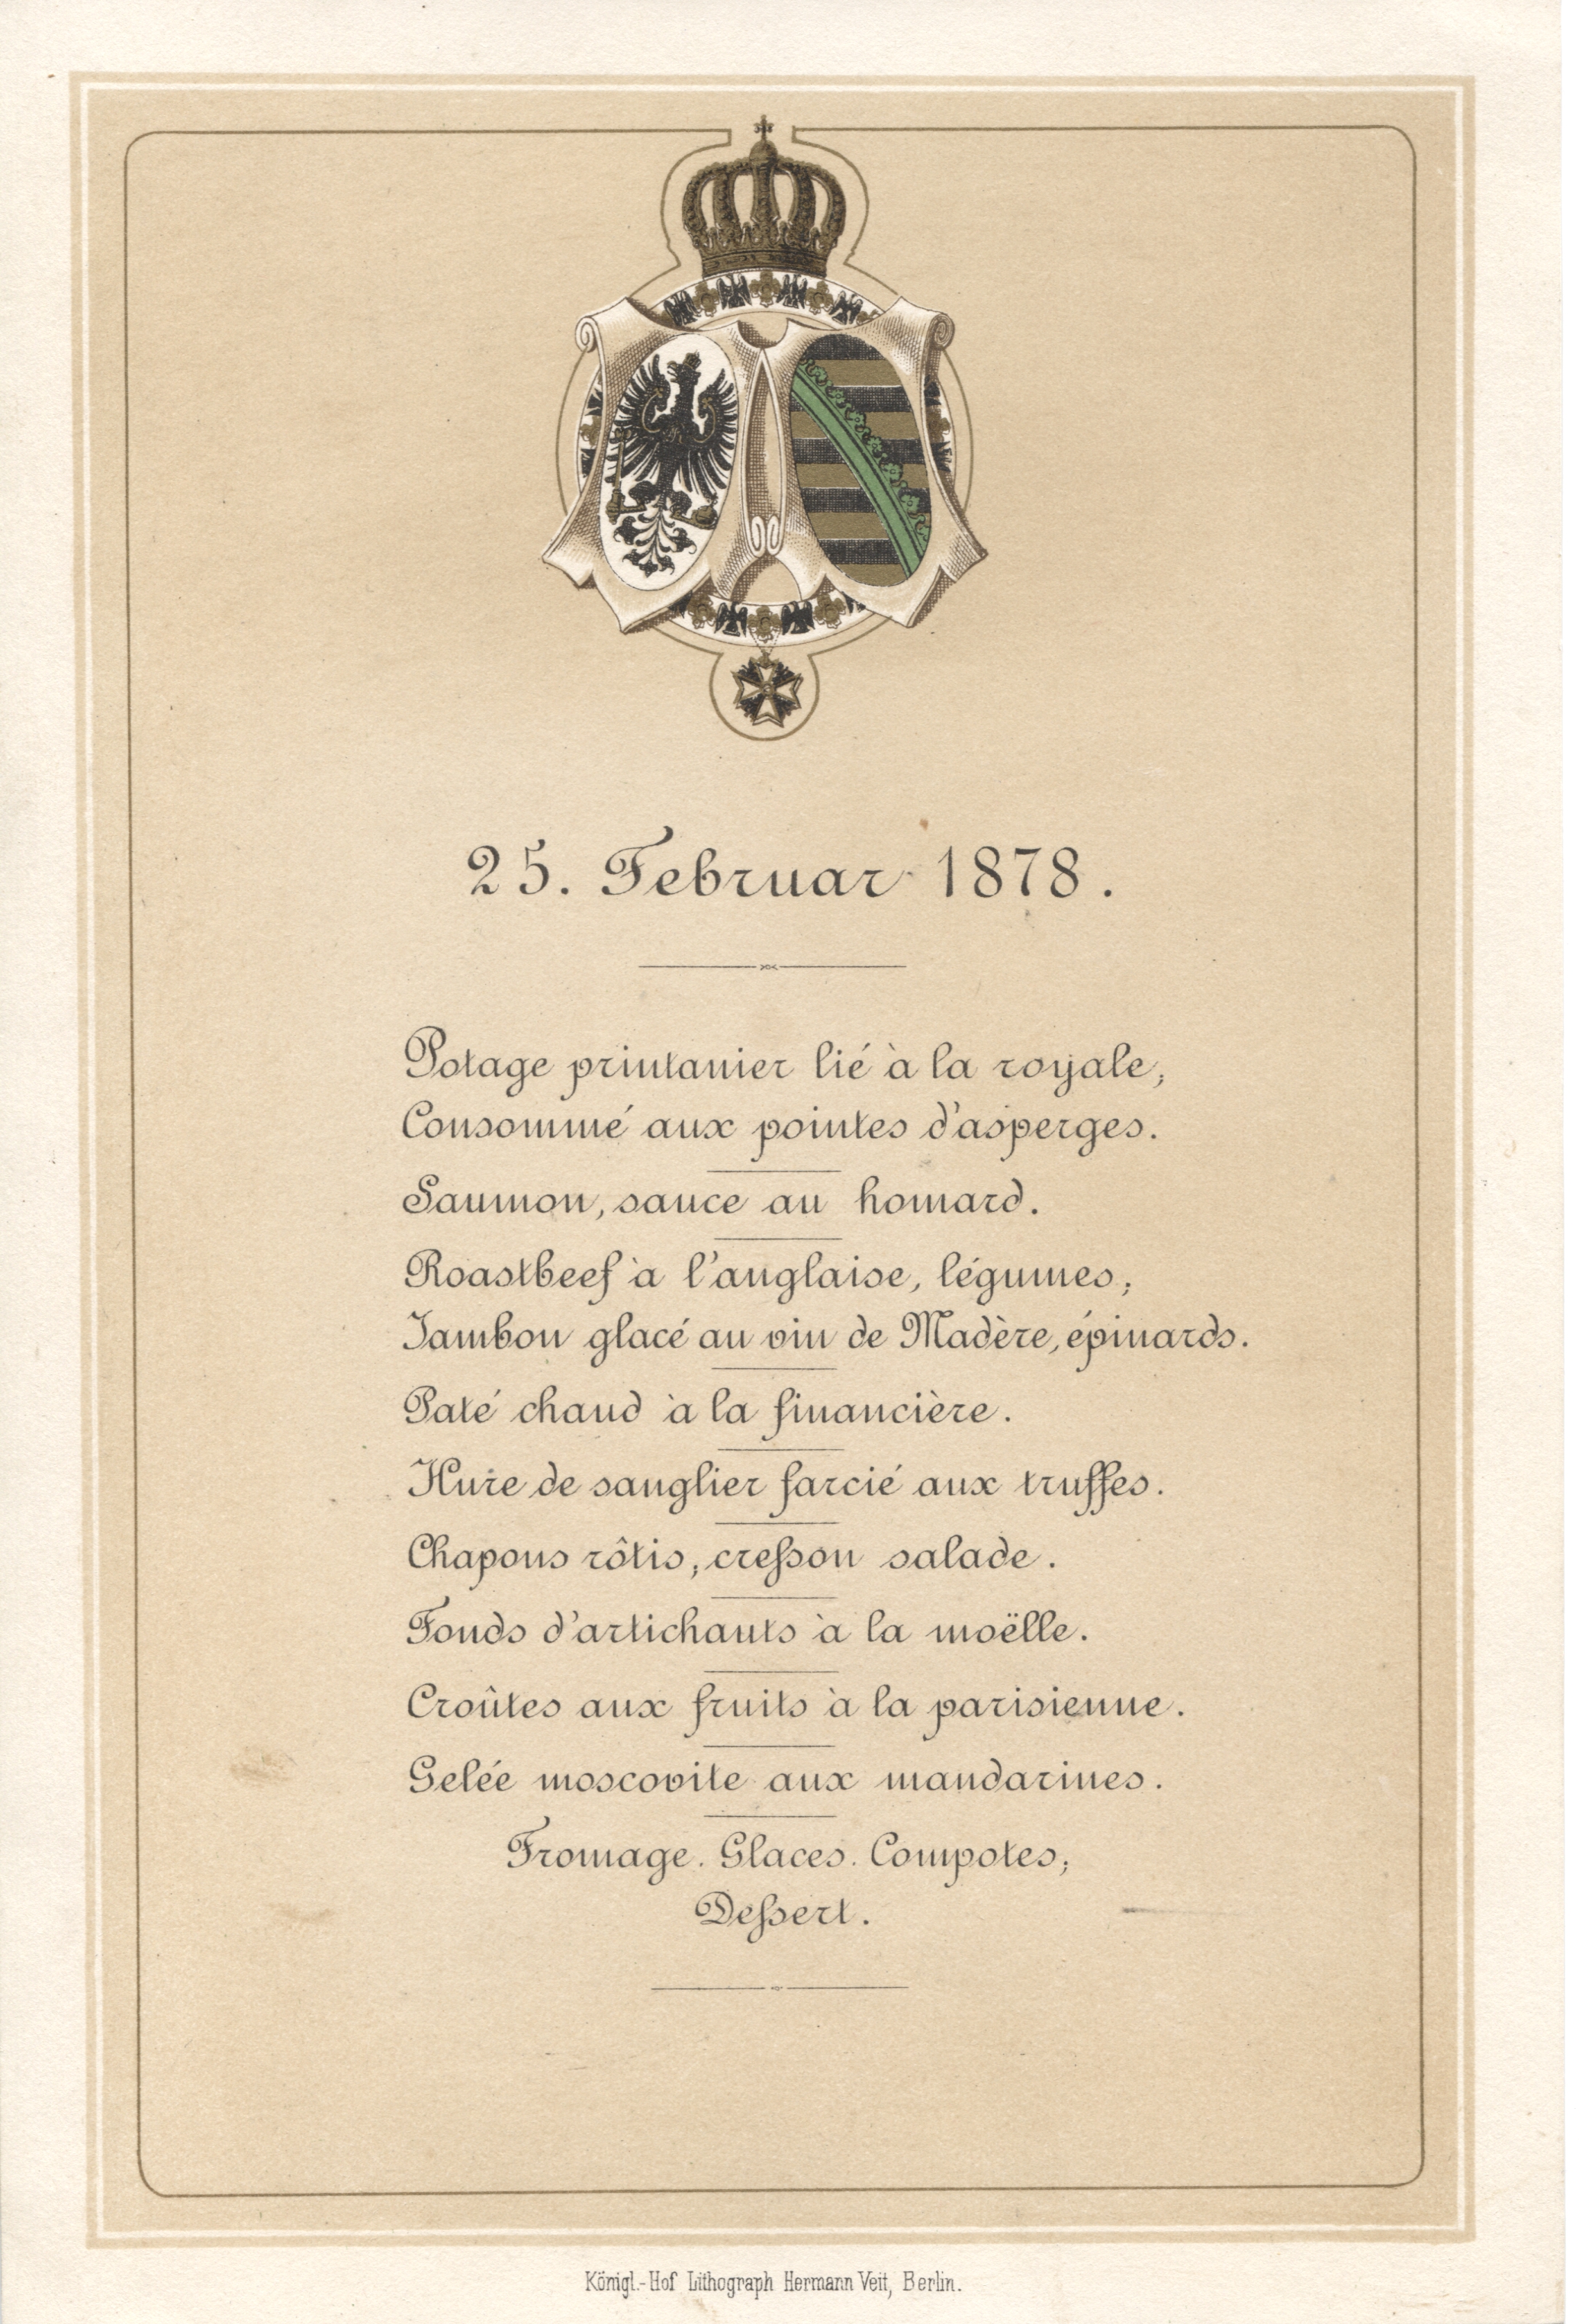 25. Februar 1878.
Potage printanier lié à la royale;
Consommé aux pointes d'asperges.
Saumon, sauce au homard.
Roastbeef à l'anglaise, légumes;
Jambon glacé au vin de Madère, épinards.
Paté chaud à la financière.
Hure de sanglier farcié aux truffes.
Chapons rôtis; creſson salade.
Fonds d'artichauts à la moëlle.
Croûtes aux fruits à la parisienne.
Gelée moscovite aux mandarines.
Fromage. Glaces. Compotes;
Deſsert.
Königl.-Hof Lithograph Hermann Veit, Berlin.